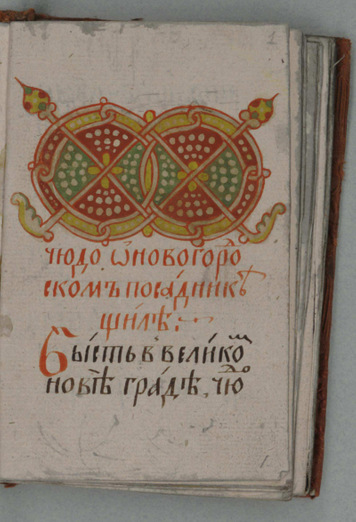 чюдо ѡ новогоро
скомъ посáдникѣ
щилѣ:
Бы́сть в вели́ко
новѣ гра́дѣ, чю